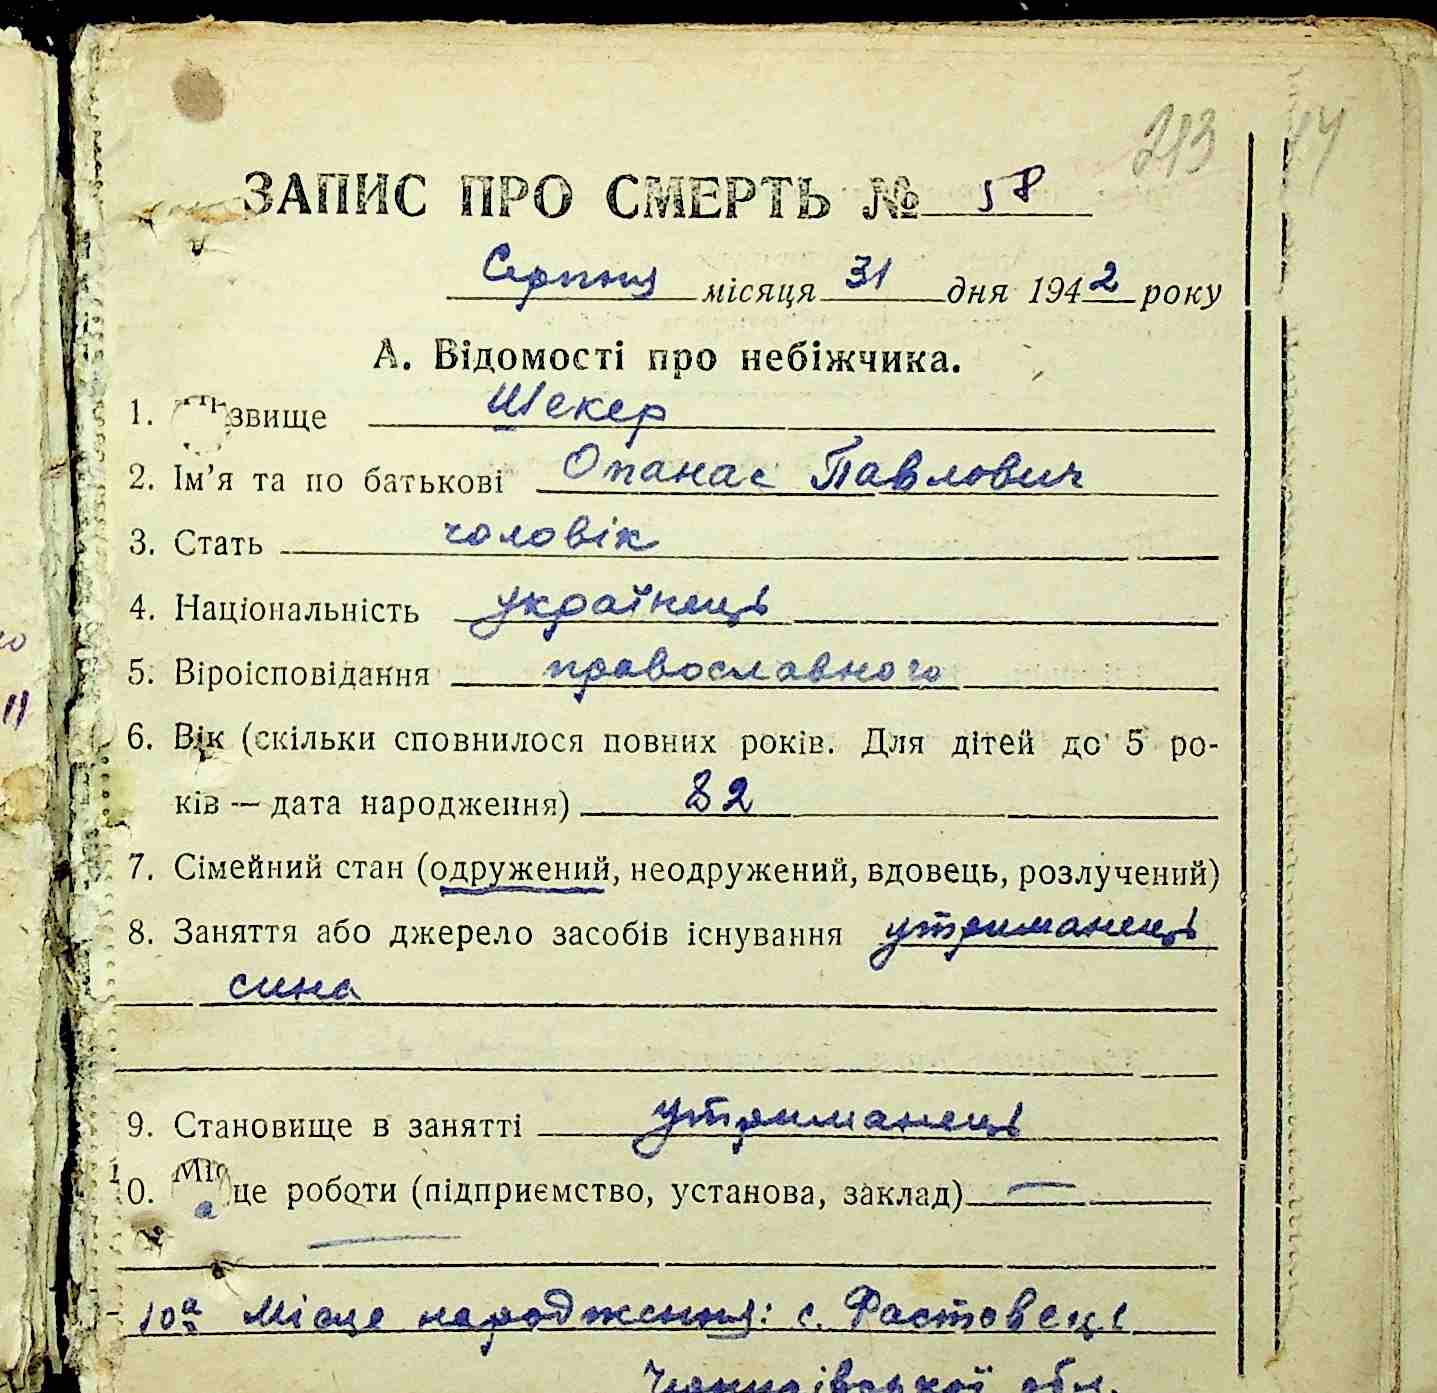 213 14
ЗАПИС ПРО СМЕРТЬ № 58
Серпня місяця 31 дня 1942 року
А. Відомості про небіжчика.
1. Прізвище Шекер
2. Ім'я та по батькові Опанас Павлович
3. Стать чоловік
4. Національність українець
5. Віроісповідання православного
6. Вік (скільки сповнилося повних років. Для дітей до 5 ро-
ків — дата народження) 82
7. Сімейний стан (одружений, неодружений, вдовець, розлучений)
8. Заняття або джерело засобів існування утриманець
сина
9. Становище в занятті утриманець
10. Місце роботи (підприємство, установа, заклад) —
—
10а Місце народження: с. Фастовець
Чернигівської обл.